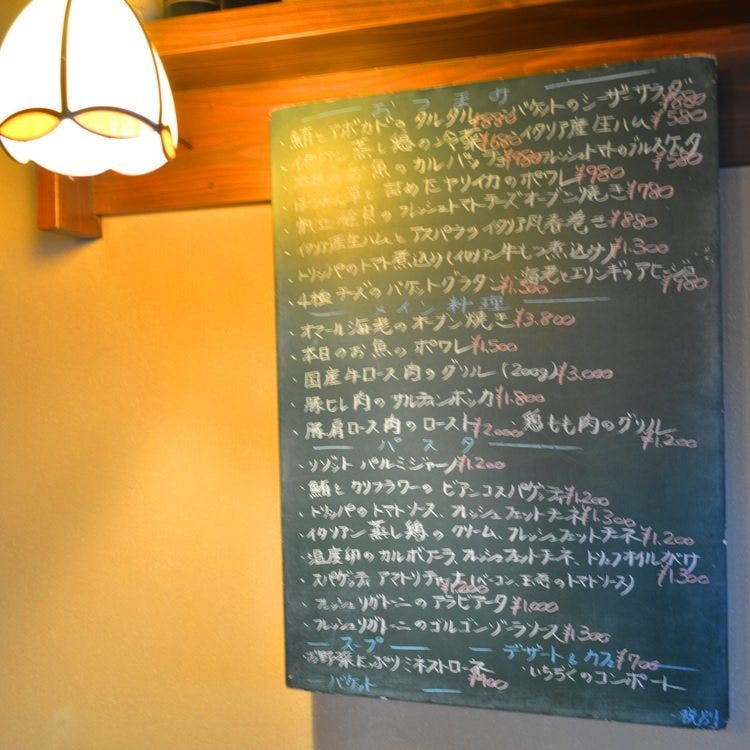 おつまみ
・鮪とアボカドのタルタル¥880 ・バケットのシーザーサラダ¥880
・イタリアン蒸し鶏の冷菜¥680 ・イタリア産生ハム¥580
・本日のお魚のカルパッチョ¥780 ・フレッシュトマトのブルスケッタ¥580
・ほうれん草と詰めたヤリイカのポワレ¥980
・帆立貝のフレッシュトマトチーズオーブン焼き¥780
・イタリア産生ハムとアスパラのイタリア風春巻き¥880
・トリッパのトマト煮込み(イタリアン牛もつ煮込み)¥1.300
・4種チーズのバケットグラタン¥1.300 ・海老とエリンギのアヒージョ¥980
メイン料理
・オマール海老のオーブン焼き¥3.800
・本日のお魚のポワレ¥1.500
・国産牛ロース肉のグリル(200g)¥3.000
・豚ヒレ肉のサルティンボッカ¥1.800
・豚肩ロース肉のロースト¥2000 ・鶏もも肉のグリル¥1.200
パスタ
・リゾット パルミジャーノ¥1.200
・鮪とカリフラワーのビアンコスパゲッティ¥1.200
・トリッパのトマトソース、フレッシュフェットチーネ¥1.300
・イタリアン蒸し鶏のクリーム、フレッシュフェットチーネ¥1.200
・温度卵のカルボナーラ、フレッシュフェットチーネ、トリュフオイルがけ¥1.300
・スパゲッティ アマトリチャーナ(ベーコン、玉ネギのトマトソース)¥1.000
・フレッシュリガトーニのアラビアータ¥1.000
・フレッシュリガトーニのゴルゴンゾーラソース¥1.300
スープ デザート&カフェ¥700
・お野菜たっぷりミネストローネ¥400 ・いちぢくのコンポート
バケット
税別